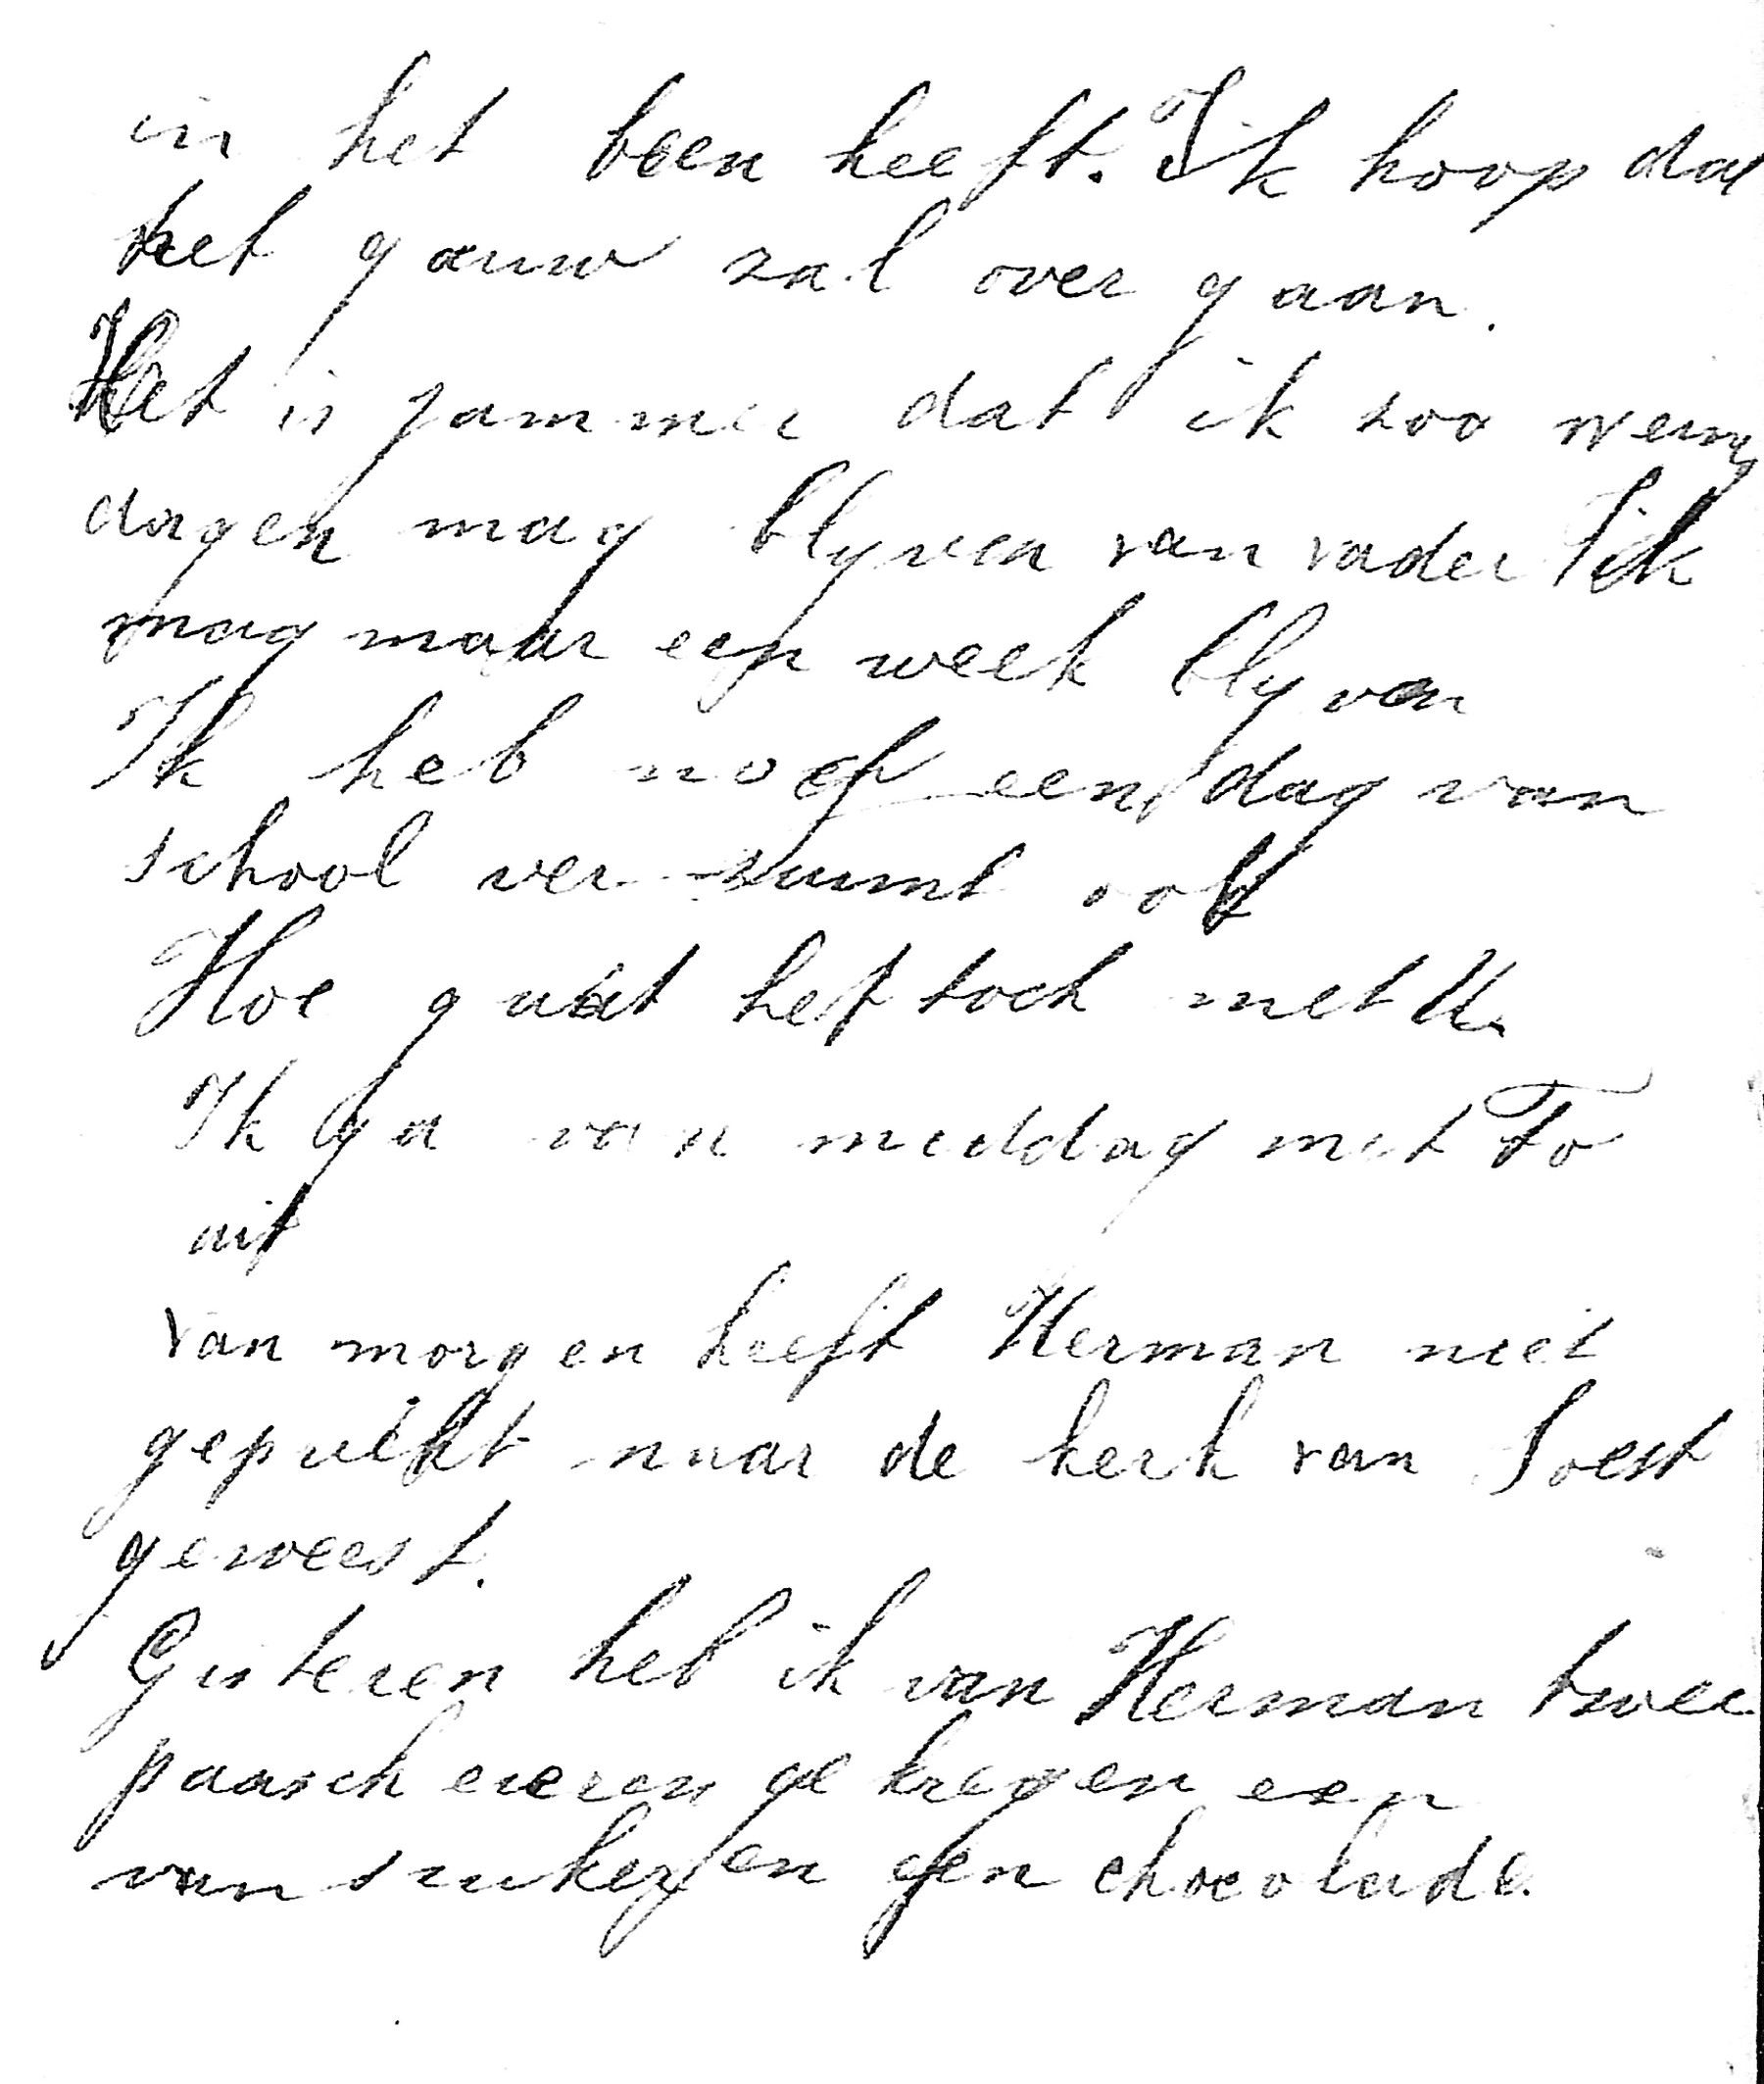 in het been heeft. Ik hoop dat
het gauw zal over gaan.
Het is jammer dat ik zoo weinig
dagen mag blyven van vader Ik
mag maar een week blyven
Ik heb nog een dag van
school ver zuimt ook
Hoe gaat het toch met U.
Ik ga van middag met To
uit
van morgen heeft Herman niet
gepreekt naar de kerk van Soest
geweest.
Gisteren heb ik van Herman twee
paasch eieren ge kregen een
van suiker en een chocolade.